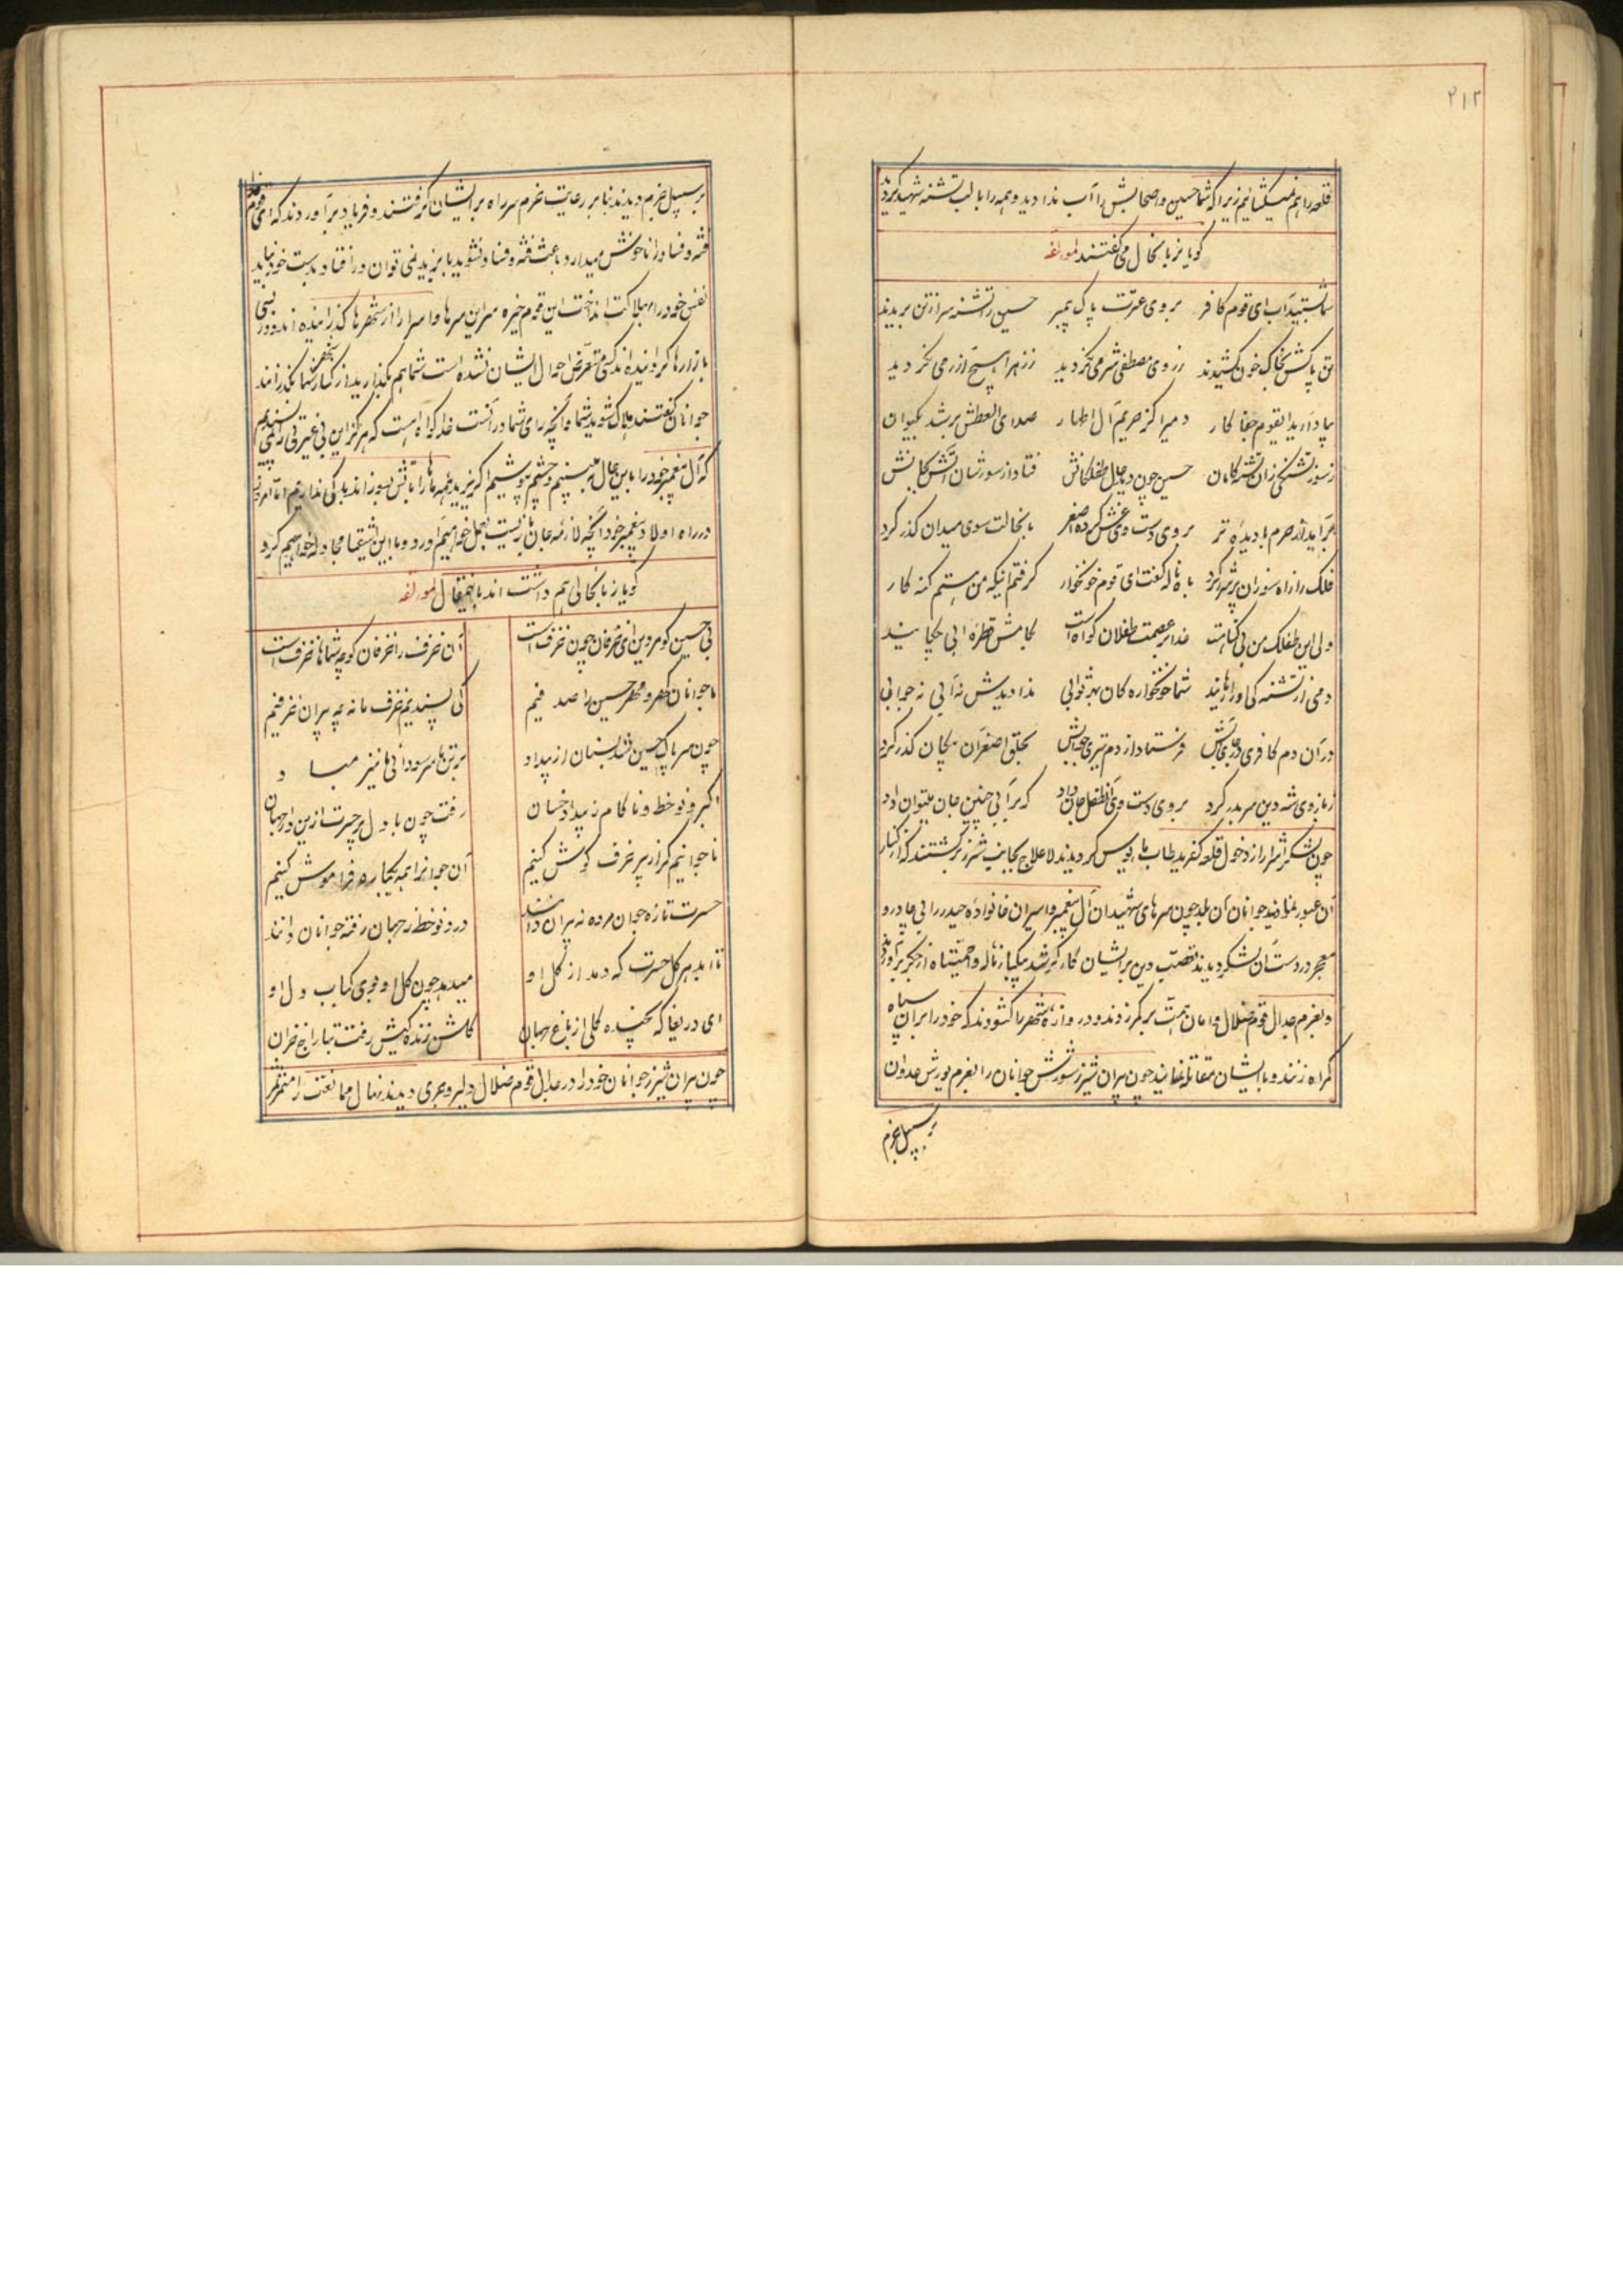 ۲۱۲
قلعه را هم نمیکشائیم زیرا که شما حسین و اصحابش را آب ندادید و همه را با لب تشنه شهید کردید
گویا بزبانحال می گفتند لمولفه
شما بستید آب ای قوم کافر بروی عترت پاک پیمبر حسین را تشنه سر از تن بریدید
تن پاکش بخاک خون کشیدند ز روی مصطفی شرمی نکردید ز زهرا هیچ آزرمی نکردید
بیاد آرید ایقوم جفا کار دمیرا کز حریم آل اطهار صدای العطش بر شد بکیوان
ز سوز تشنگی زان تشنه کامان حسین چون دید حال طفلکانش فتاد از سوزشان آتش بجانش
برآمد از حرم با دیده تر بروی دست وی غش کرده اصغر بخجالت سوی میدان گذر کرد
فلک را ز آه سوزان پر شرر کرد باه ناله گفت ای قوم خونخوار گرفتم اینکه من هستم گنه کار
ولی این طفلک من بی گناهست خدا بر عصمت طفلان گواهست بکامش قطره آبی بچکانید
دمی از تشنه کی او را رهانید شما خونخواره کان بهر ثوابی ندادیدش نه آبی نه جوابی
در آن دم کافری در جای آبش فرستاد از دم تیری جوابش بحلق اصغر آن پیکان گذر کرد
ز بازوی شه دین سر بدر کرد بروی دست وی آنطفل جان داد که بر آبی چنین جان میتوان داد
چون لشکر اشرار از دخول قلعه کفریه طاب مایوس گردیدند لاعلاج بجانب شیزر برگشتند که از کنار
آن عبور نمایند جوانان آن بلد چون سرهای شهیدان آل پیغمبر و اسیران خانواده حیدر را بی چادر و
معجر در دست آن لشکر دیدند تعصب دین بر ایشان کارگر شد بیکبار ناله واحمیتاه از جگر برآوردند
و بعزم جدال قوم ضلال دامان همت بر کمر زدند و دروازه شهر را گشودند که خود را بر آن سپاه
گمراه زنند و با ایشان مقاتله نمایند چون پیران شیزر شورش جوانان را بعزم یورش عدوان
بر سبیل عزم
بر سبیل عزم دیدند بنا بر رعایت عزم سر راه بر ایشان گرفتند و فریاد برآوردند که ای قوم خدا
فتنه و فساد را ناخوش میدارد باعث فتنه و فساد نشوید با یزید نمی توان در افتاد بدست خود نباید
نفس خود را بهلاکت انداخت این قوم خیره سر این سرها و اسرا را از شهرها گذرانیده اند و در بسی
بازارها گردانیده اند کسی متعرض احوال ایشان نشده است شما هم بگذارید از کنار شهر شما بگذرانند
جوانان گفتند هلاک شوید شما و آنچه رای شما در آنست خدا گواه است که هرگز این بی غیرتی را نمی پسندیم
که آل پیغمبر خود را باین حال به بینیم و چشم بپوشیم اگر یزید همه ما را بآتش بسوزاند باکی نداریم
در راه اولاد پیغمبر خود آنچه لازمه جان بازیست بعمل خواهیم آورد و با این اشقیا مجادله خواهیم کرد
گویا زبانحالی هم داشت اند باینمقال لمولفه
بی حسین کو مر دین ای خرفان چون خزفست آن خزف را خرفان گو چه شماها خزفست
ما جوانان گهر و مهر حسین را صدفیم کی پسندیم خزف ما نه چه پیران خرفیم
چون سر پاک حسین شد بسنان از بیداد بر تن ما سر سودائی ما نیز مباد
اکبر و نو خط و ناکام ز بیداد خسان رفت چون با دل پر حسرت ازین دار جهان
ما جوانیم گر از پیر خرف گوش کنیم آن جوانرا همه یکباره فراموش کنیم
حسرت تازه جوان مرده نه پیران دانند درد نو خط ز جهان رفته جوانان دانند
تا ابد هر گل حسرت که دمد از گل او میدهد چون گل او بوی کباب دل او
ای دریغا که نخنده گلی از باغ جهان گلشن زنده گیش رفت بتاراج خزان
چون پیران شیزر جوانان خود را در جدال قوم ضلال دلیر و جری دیدند نهال ممانعت را مثمر ثمر